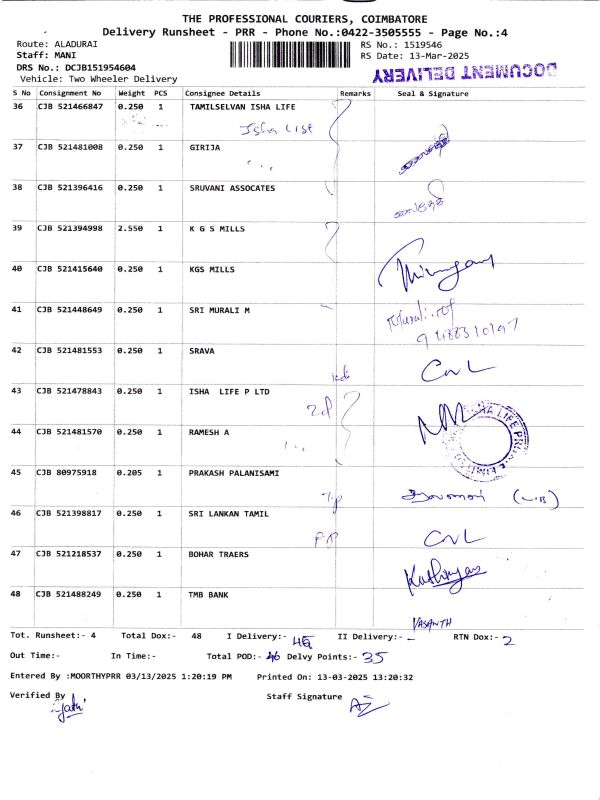 THE PROFESSIONAL COURIERS, COIMBATORE
Delivery Runsheet - PRR - Phone No.:0422-3505555 - Page No.:4
Route: ALADURAI
RS No.: 1519546
Staff: MANI
RS Date: 13-Mar-2025
DRS No.: DCJB151954604
DOCUMENT DELIVERY
Vehicle: Two Wheeler Delivery
S No Consignment No Weight PCS Consignee Details Remarks Seal & Signature
36 CJB 521466847 0.250 1 TAMILSELVAN ISHA LIFE
Isha List
37 CJB 521481008 0.250 1 GIRIJA
38 CJB 521396416 0.250 1 SRUVANI ASSOCATES
39 CJB 521394998 2.550 1 K G S MILLS
40 CJB 521415640 0.250 1 KGS MILLS
41 CJB 521448649 0.250 1 SRI MURALI M
42 CJB 521481553 0.250 1 SRAVA
CNL
43 CJB 521478843 0.250 1 ISHA LIFE P LTD
44 CJB 521481570 0.250 1 RAMESH A
45 CJB 80975918 0.205 1 PRAKASH PALANISAMI
46 CJB 521398817 0.250 1 SRI LANKAN TAMIL
CNL
47 CJB 521218537 0.250 1 BOHAR TRAERS
48 CJB 521488249 0.250 1 TMB BANK
VASANTH
Tot. Runsheet:- 4 Total Dox:- 48 I Delivery:- II Delivery:- - RTN Dox:- 2
Out Time:- In Time:- Total POD:- 46 Delvy Points:- 35
Entered By :MOORTHYPRR 03/13/2025 1:20:19 PM Printed On: 13-03-2025 13:20:32
Verified By Staff Signature